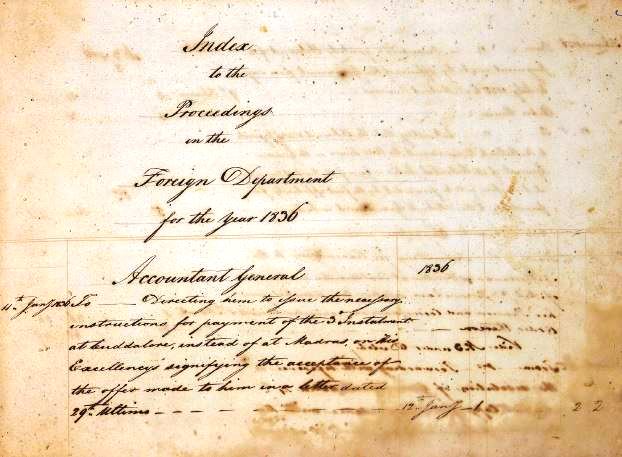 Index
to the
Proceedings
in the
Foreign Department
for the Year 1836
Accountant General 1836
11th Jany 1836 To — Directing him to issue the necessary
instructions for payment of the 3d Instalment
at Cuddalore, instead of at Madras, on His
Excellency's signifying the acceptance of
the offer made to him in a letter dated
29th Ultimo — — — — — — 12th Jany 1 2 2